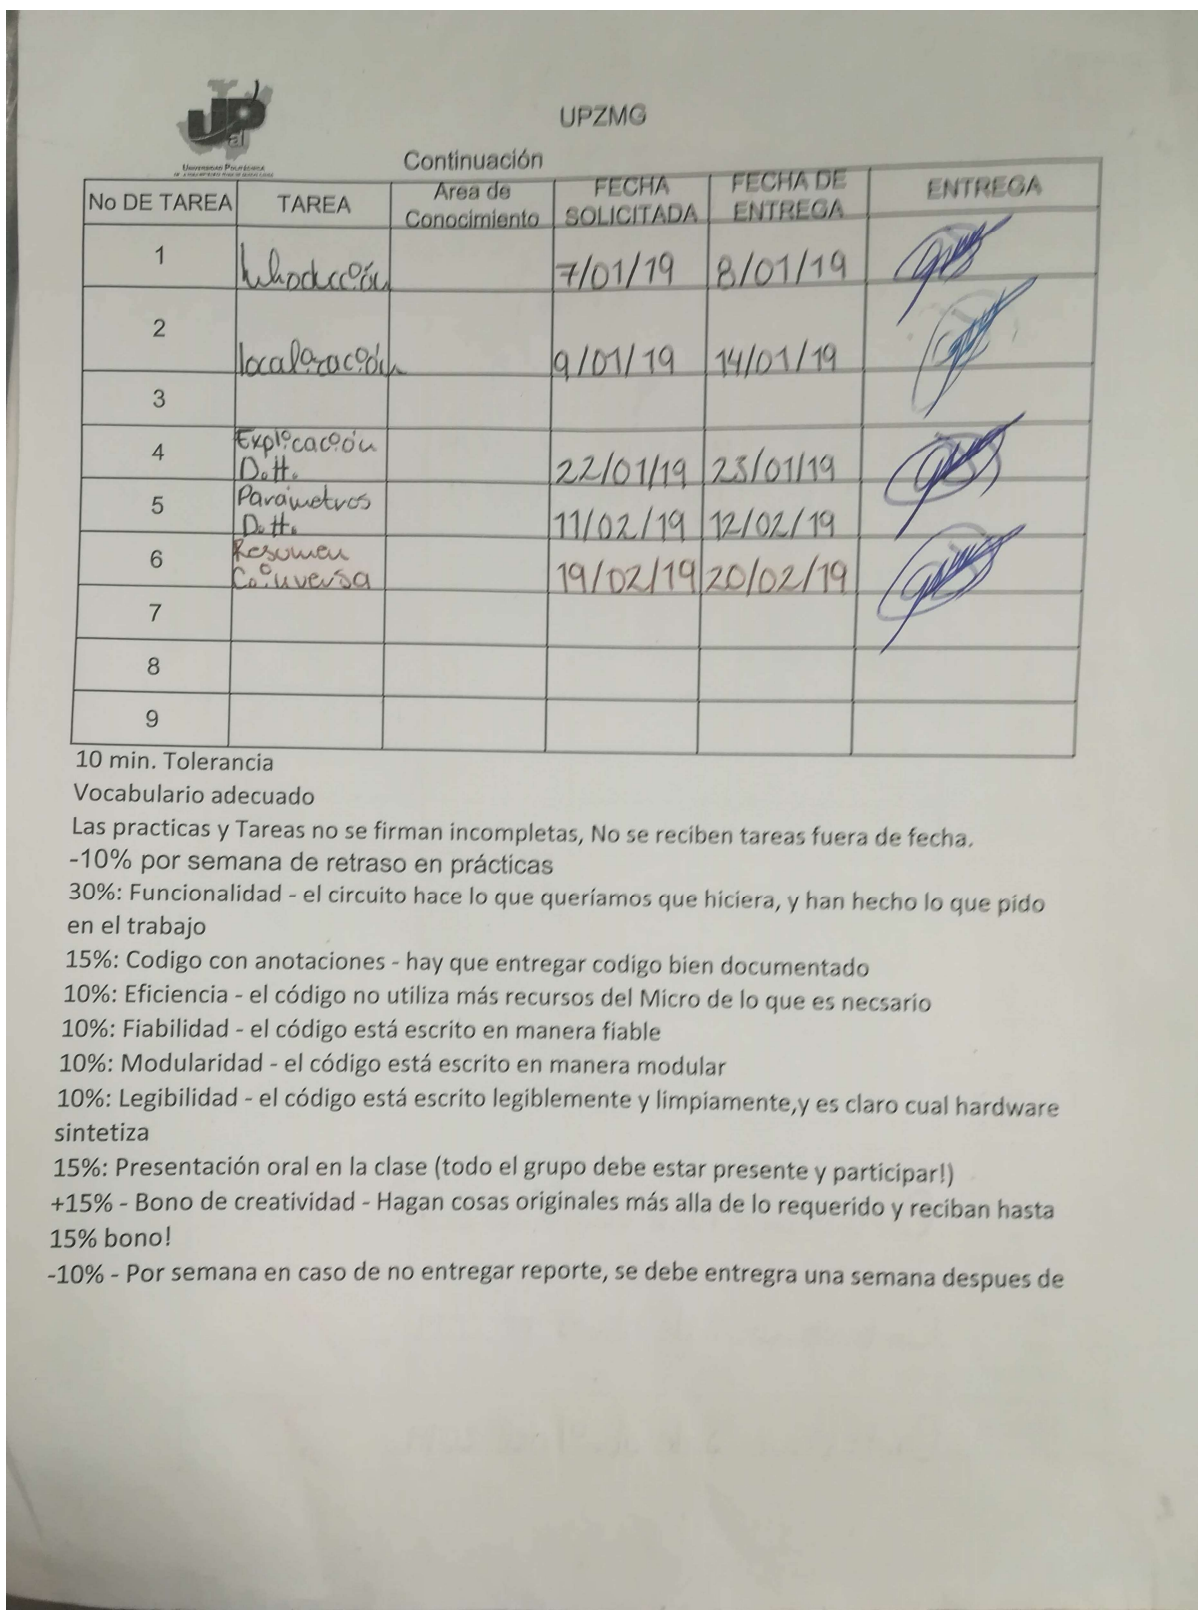 UPZMG
UP
al
UNIVERSIDAD POLITÉCNICA
Continuación
No DE TAREA TAREA Area de Conocimiento FECHA SOLICITADA FECHA DE ENTREGA ENTREGA
1 Introducción 7/01/19 8/01/19
2 localización 9/01/19 14/01/19
3
4 Explicación D.H. 22/01/19 23/01/19
5 Parámetros D.H. 11/02/19 12/02/19
6 Resumen C.inversa 19/02/19 20/02/19
7
8
9
10 min. Tolerancia
Vocabulario adecuado
Las practicas y Tareas no se firman incompletas, No se reciben tareas fuera de fecha.
-10% por semana de retraso en prácticas
30%: Funcionalidad - el circuito hace lo que queríamos que hiciera, y han hecho lo que pido
en el trabajo
15%: Codigo con anotaciones - hay que entregar codigo bien documentado
10%: Eficiencia - el código no utiliza más recursos del Micro de lo que es necsario
10%: Fiabilidad - el código está escrito en manera fiable
10%: Modularidad - el código está escrito en manera modular
10%: Legibilidad - el código está escrito legiblemente y limpiamente,y es claro cual hardware
sintetiza
15%: Presentación oral en la clase (todo el grupo debe estar presente y participar!)
+15% - Bono de creatividad - Hagan cosas originales más alla de lo requerido y reciban hasta
15% bono!
-10% - Por semana en caso de no entregar reporte, se debe entregra una semana despues de